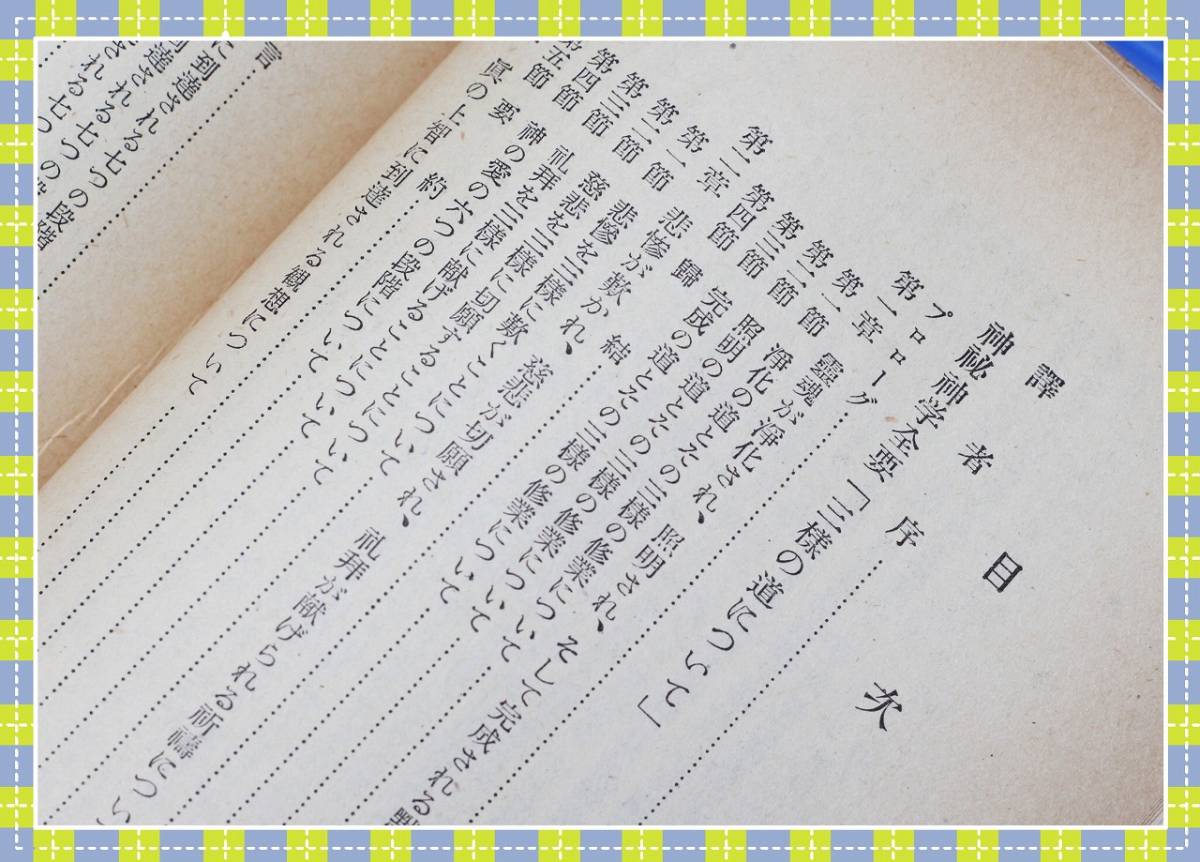 目次
譯者序
神秘神学全要「三様の道について」
プロローグ
第一章 靈魂が淨化され、照明され、そして完成される
第一節 淨化の道とその三様の修業について
第二節 照明の道とその三様の修業について
第三節 完成の道とその三様の修業について
第四節 歸結
第二章 悲惨が歎かれ、慈悲が切願され、礼拝が献げられる祈禱につい
第一節 悲惨を三様に歎くことについて
第二節 慈悲を三様に切願することについて
第三節 礼拝を三様に献げることについて
第四節 神の愛の六つの段階について
第五節 要約
眞の上智に到達される観想について
言
に到達される七つの段階
到達される七つの段階
される七つの